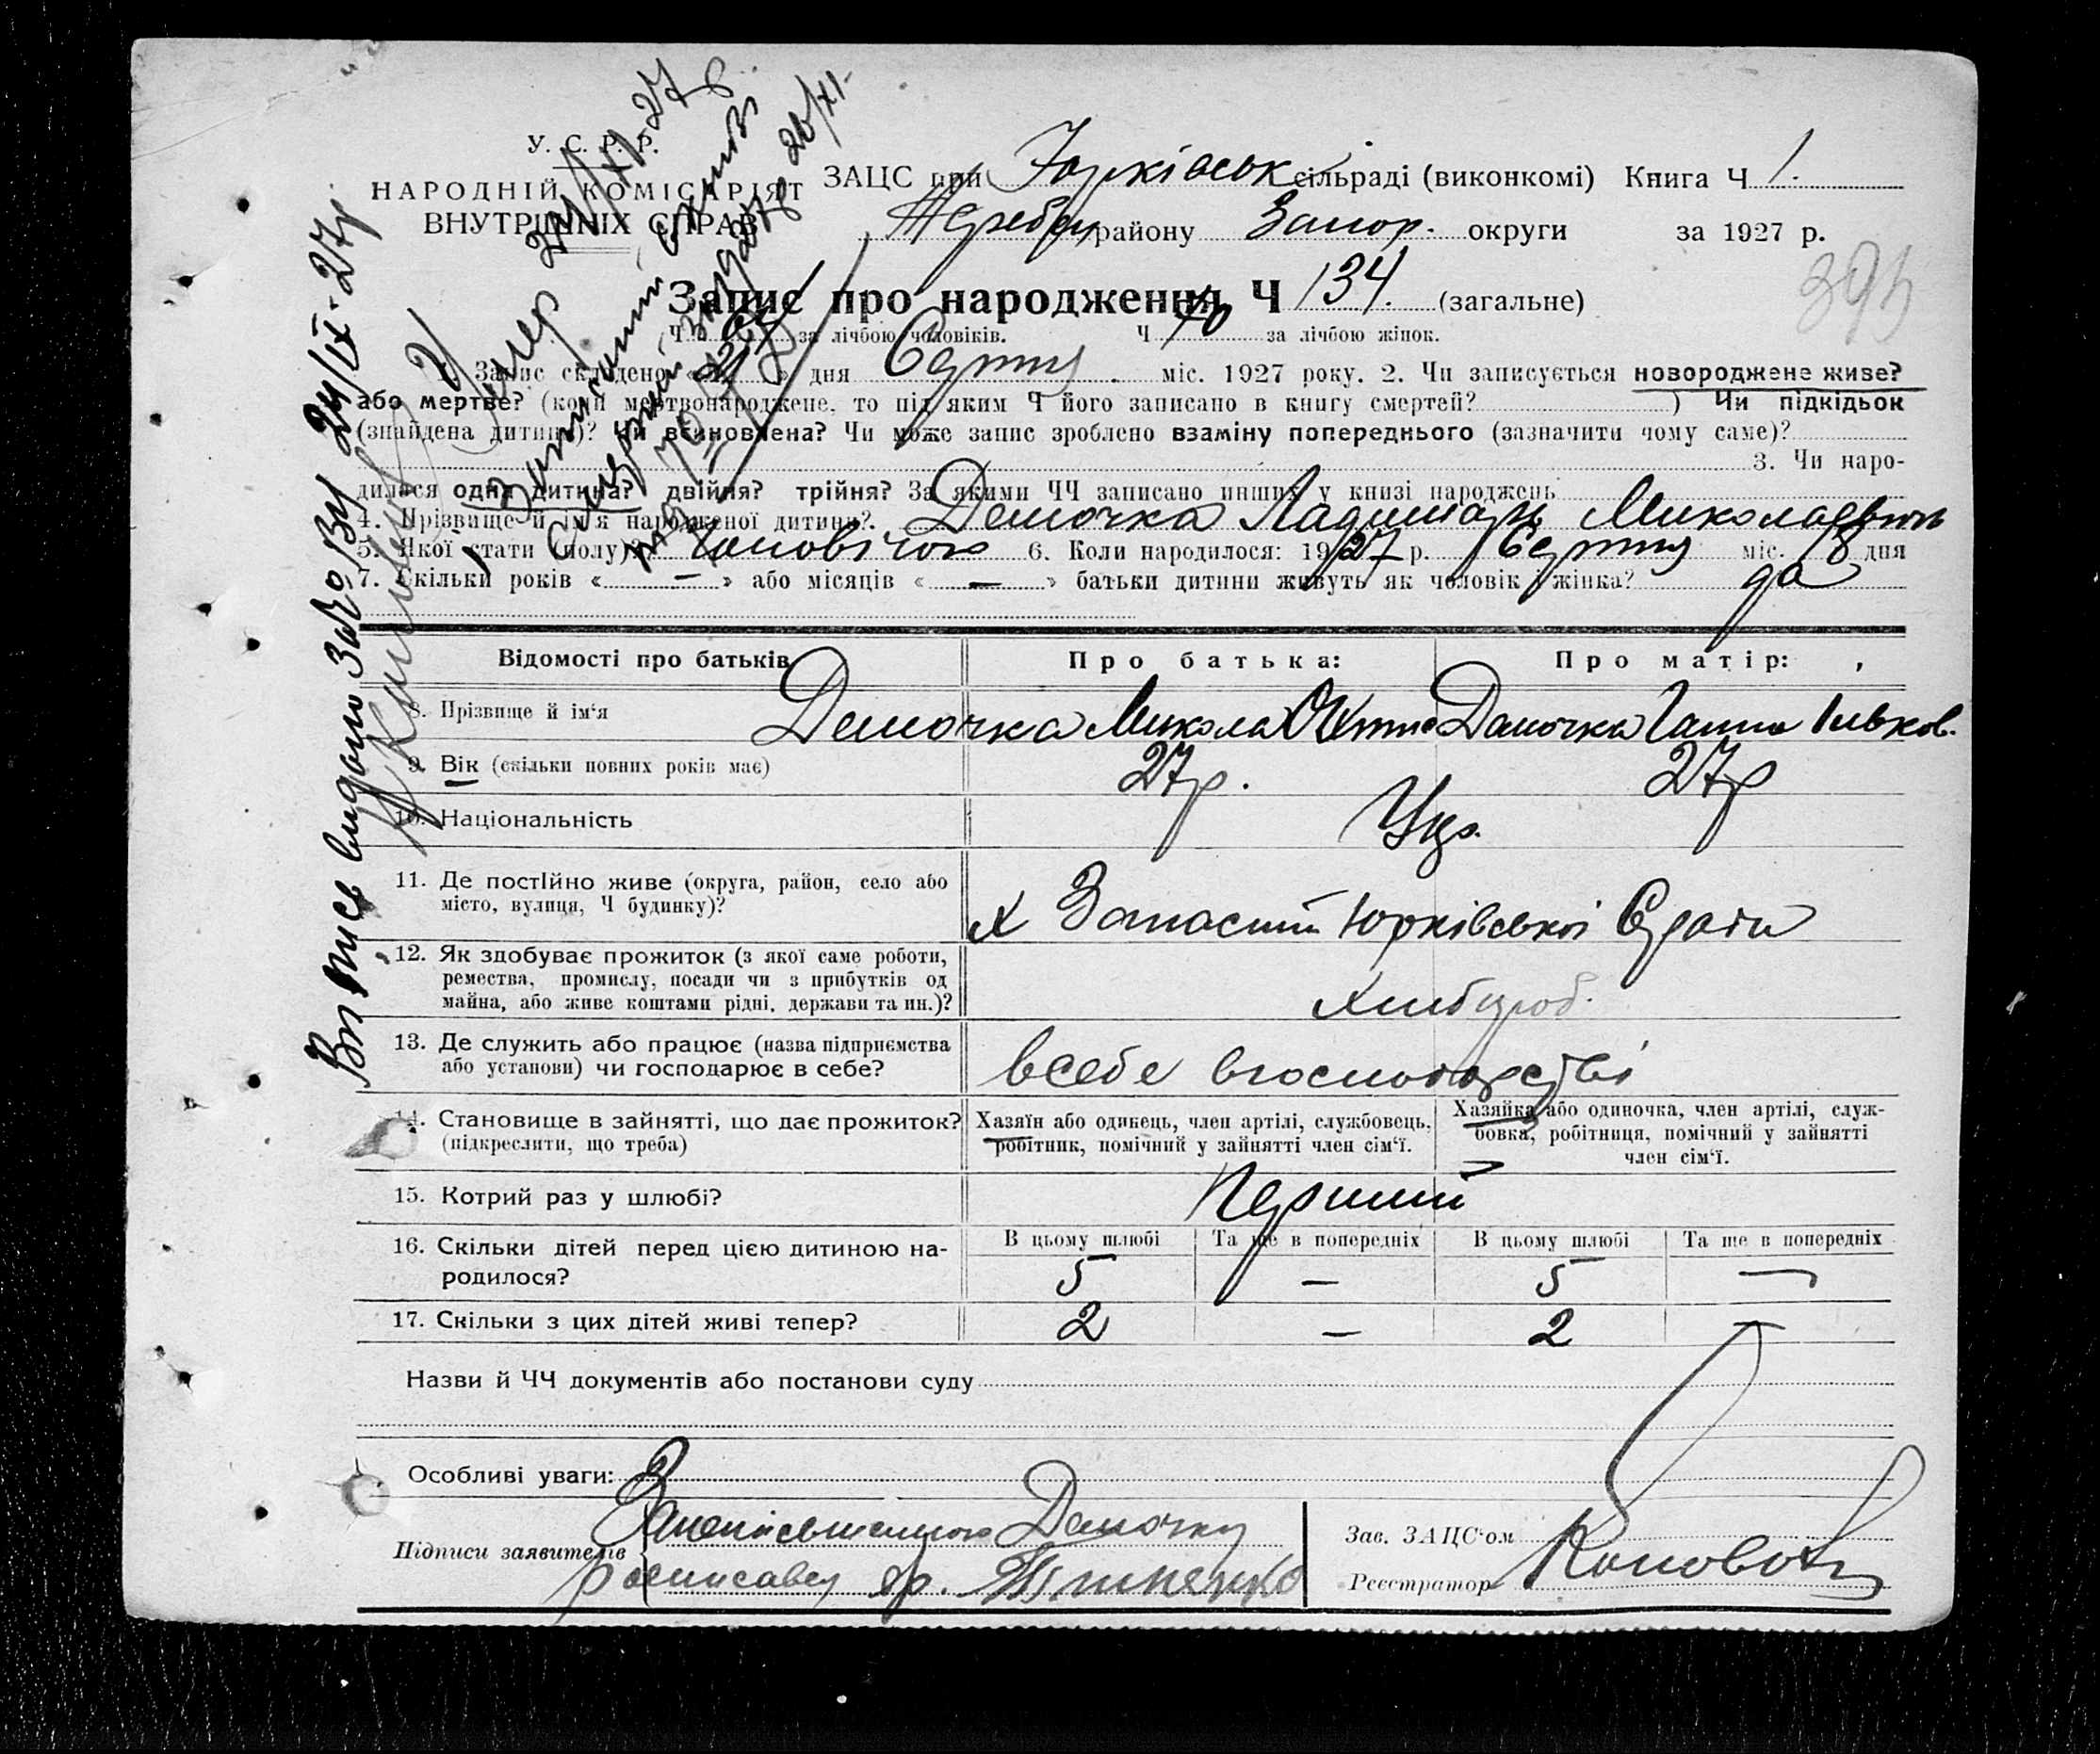 У. С. Р. Р.
НАРОДНІЙ КОМІСАРІЯТ
ВНУТРІШНІХ СПРАВ
ЗАЦС при Юрківськ сільраді (виконкомі) Книга Ч 1.
району Запор. округи за 1927 р.
Запис про народження Ч 134. (загальне)
Ч 64 за лічбою чоловіків. Ч 70 за лічбою жінок.
1. Запис складено «21» дня Серпня міс. 1927 року. 2. Чи записується новороджене живе?
або мертве? (коли мертвонароджене, то під яким Ч його записано в книгу смертей? ) Чи підкідьок
(знайдена дитина)? Чи всиновлена? Чи може запис зроблено взаміну попереднього (зазначити чому саме)?
3. Чи наро-
дилася одна дитина? двійня? трійня? За якими ЧЧ записано инших у книзі народжень
4. Прізвище й ім'я народженої дитини? Демочка Миколаевич
5. Якої стати (полу)? Чоловічої 6. Коли народилося: 1927 р. Серпня міс. 18 дня
7. Скільки років « — » або місяців « — » батьки дитини живуть як чоловік і жінка? да
Відомості про батьків Про батька: Про матір:
8. Прізвище й ім'я Демочка Микола Демочка Ганна
9. Вік (скільки повних років має) 27р. 27р
10. Національність Укр.
11. Де постійно живе (округа, район, село або
місто, вулиця, Ч будинку)?
х Запасний Юрківської С/ради
12. Як здобуває прожиток (з якої саме роботи,
ремества, промислу, посади чи з прибутків од
майна, або живе коштами рідні, держави та ин.)?
Хлібороб.
13. Де служить або працює (назва підприємства
або установи) чи господарює в себе?
в себе в господарстві
14. Становище в зайнятті, що дає прожиток?
(підкреслити, що треба)
Хазяїн або одинець, член артілі, службовець,
робітник, помічний у зайнятті член сім'ї.
Хазяйка або одиночка, член артілі, служ-
бовка, робітниця, помічний у зайнятті
член сім'ї.
15. Котрий раз у шлюбі? Перший
16. Скільки дітей перед цією дитиною на-
родилося?
В цьому шлюбі Та ще в попередніх В цьому шлюбі Та ще в попередніх
5 — 5 —
17. Скільки з цих дітей живі тепер? 2 — 2 —
Назви й ЧЧ документів або постанови суду
Особливі уваги:
Підписи заявителів
За неписьменного Демочку
росписався гр.
Зав. ЗАЦС'ом
Реєстратор
Випис видано 24/IX-27р
Умер 24/XI-27р
Записаний
смертей